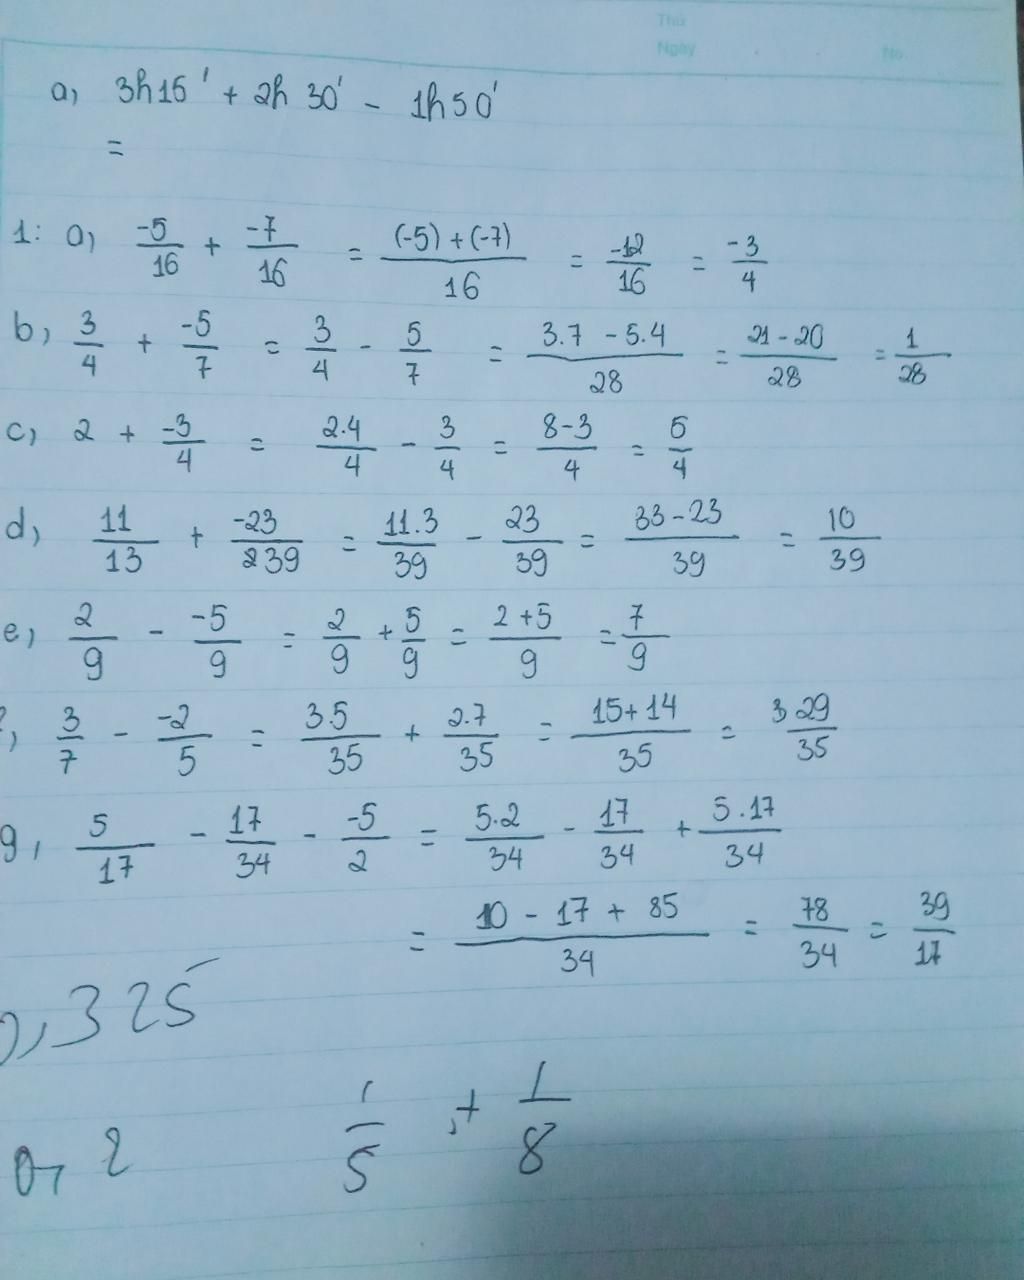 Thứ
Ngày No
a, 3h15' + 2h 30' - 1h50'
=
1: a, -5/16 + -7/16 = (-5)+(-7)/16 = -12/16 = -3/4
b, 3/4 + -5/7 = 3/4 - 5/7 = 3.7 - 5.4/28 = 21 - 20/28 = 1/28
c, 2 + -3/4 = 2.4/4 - 3/4 = 8-3/4 = 5/4
d, 11/13 + -23/239 = 11.3/39 - 23/39 = 33-23/39 = 10/39
e, 2/9 - -5/9 = 2/9 + 5/9 = 2+5/9 = 7/9
, 3/7 - -2/5 = 3.5/35 + 2.7/35 = 15+14/35 = 29/35
g, 5/17 - 17/34 - -5/2 = 5.2/34 - 17/34 + 5.17/34
= 10 - 17 + 85/34 = 78/34 = 39/17
0,325
0,2 1/5 + 1/8